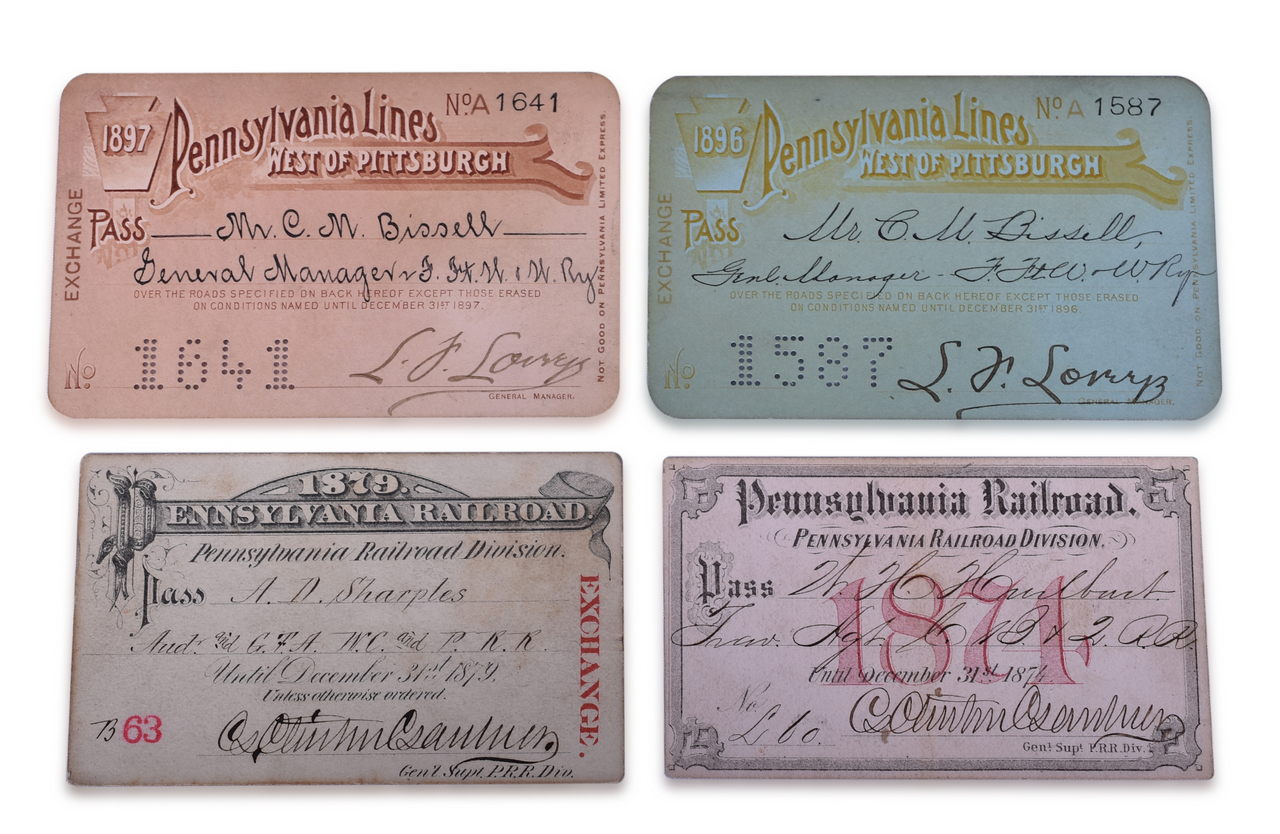 1897
Pennsylvania Lines
No A 1641
WEST OF PITTSBURGH
EXCHANGE
PASS Mr. C. M. Bissell
General Manager, F. Ft. W. & W. Ry
OVER THE ROADS SPECIFIED ON BACK HEREOF EXCEPT THOSE ERASED
ON CONDITIONS NAMED UNTIL DECEMBER 31ST 1897.
No. 1641
GENERAL MANAGER.
NOT GOOD ON PENNSYLVANIA LIMITED EXPRESS.
1896
Pennsylvania Lines
No A 1587
WEST OF PITTSBURGH
EXCHANGE
PASS Mr. C. M. Bissell,
Genl. Manager - F. Ft W. & W Ry
OVER THE ROADS SPECIFIED ON BACK HEREOF EXCEPT THOSE ERASED
ON CONDITIONS NAMED UNTIL DECEMBER 31ST 1896.
No. 1587
GENERAL MANAGER.
NOT GOOD ON PENNSYLVANIA LIMITED EXPRESS.
1879.
PENNSYLVANIA RAILROAD.
Pennsylvania Railroad Division.
Pass A. D. Sharples
Aud. and G. F. A. W. C. and P. R. R.
Until December 31st 1879.
Unless otherwise ordered.
B 63
Gen'l Supt. P.R.R. Div.
EXCHANGE.
Pennsylvania Railroad.
PENNSYLVANIA RAILROAD DIVISION.
Pass W. H. Hurlburt
Trav. Agt. C. B & Q. R.R.
1874
Until December 31st 1874
No L 60.
Gen'l Supt P.R.R. Div.